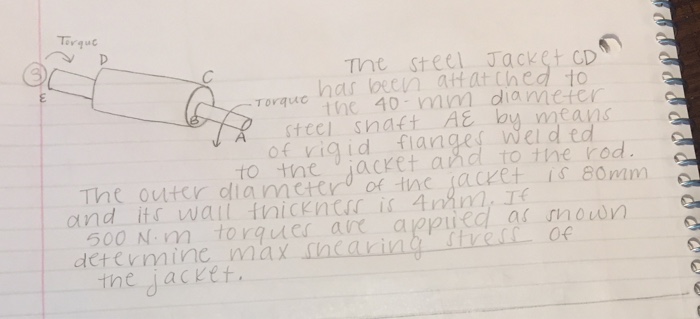 Torque
D
The steel Jacket CD
③
C
has been attatched to
E
Torque
the 40-mm diameter
B
A
steel shaft AE by means
of rigid flanges welded
to the jacket and to the rod.
The outer diameter of the jacket is 80mm
and its wall thickness is 4mm. If
500 N·m torques are applied as shown
determine max shearing stress of
the jacket.